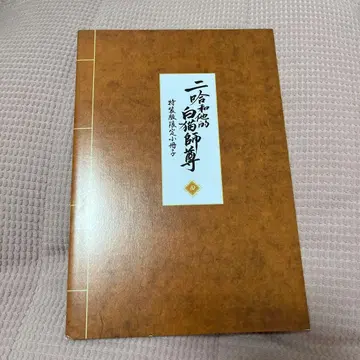 二哈和他的
白猫師尊
特装版限定小冊子